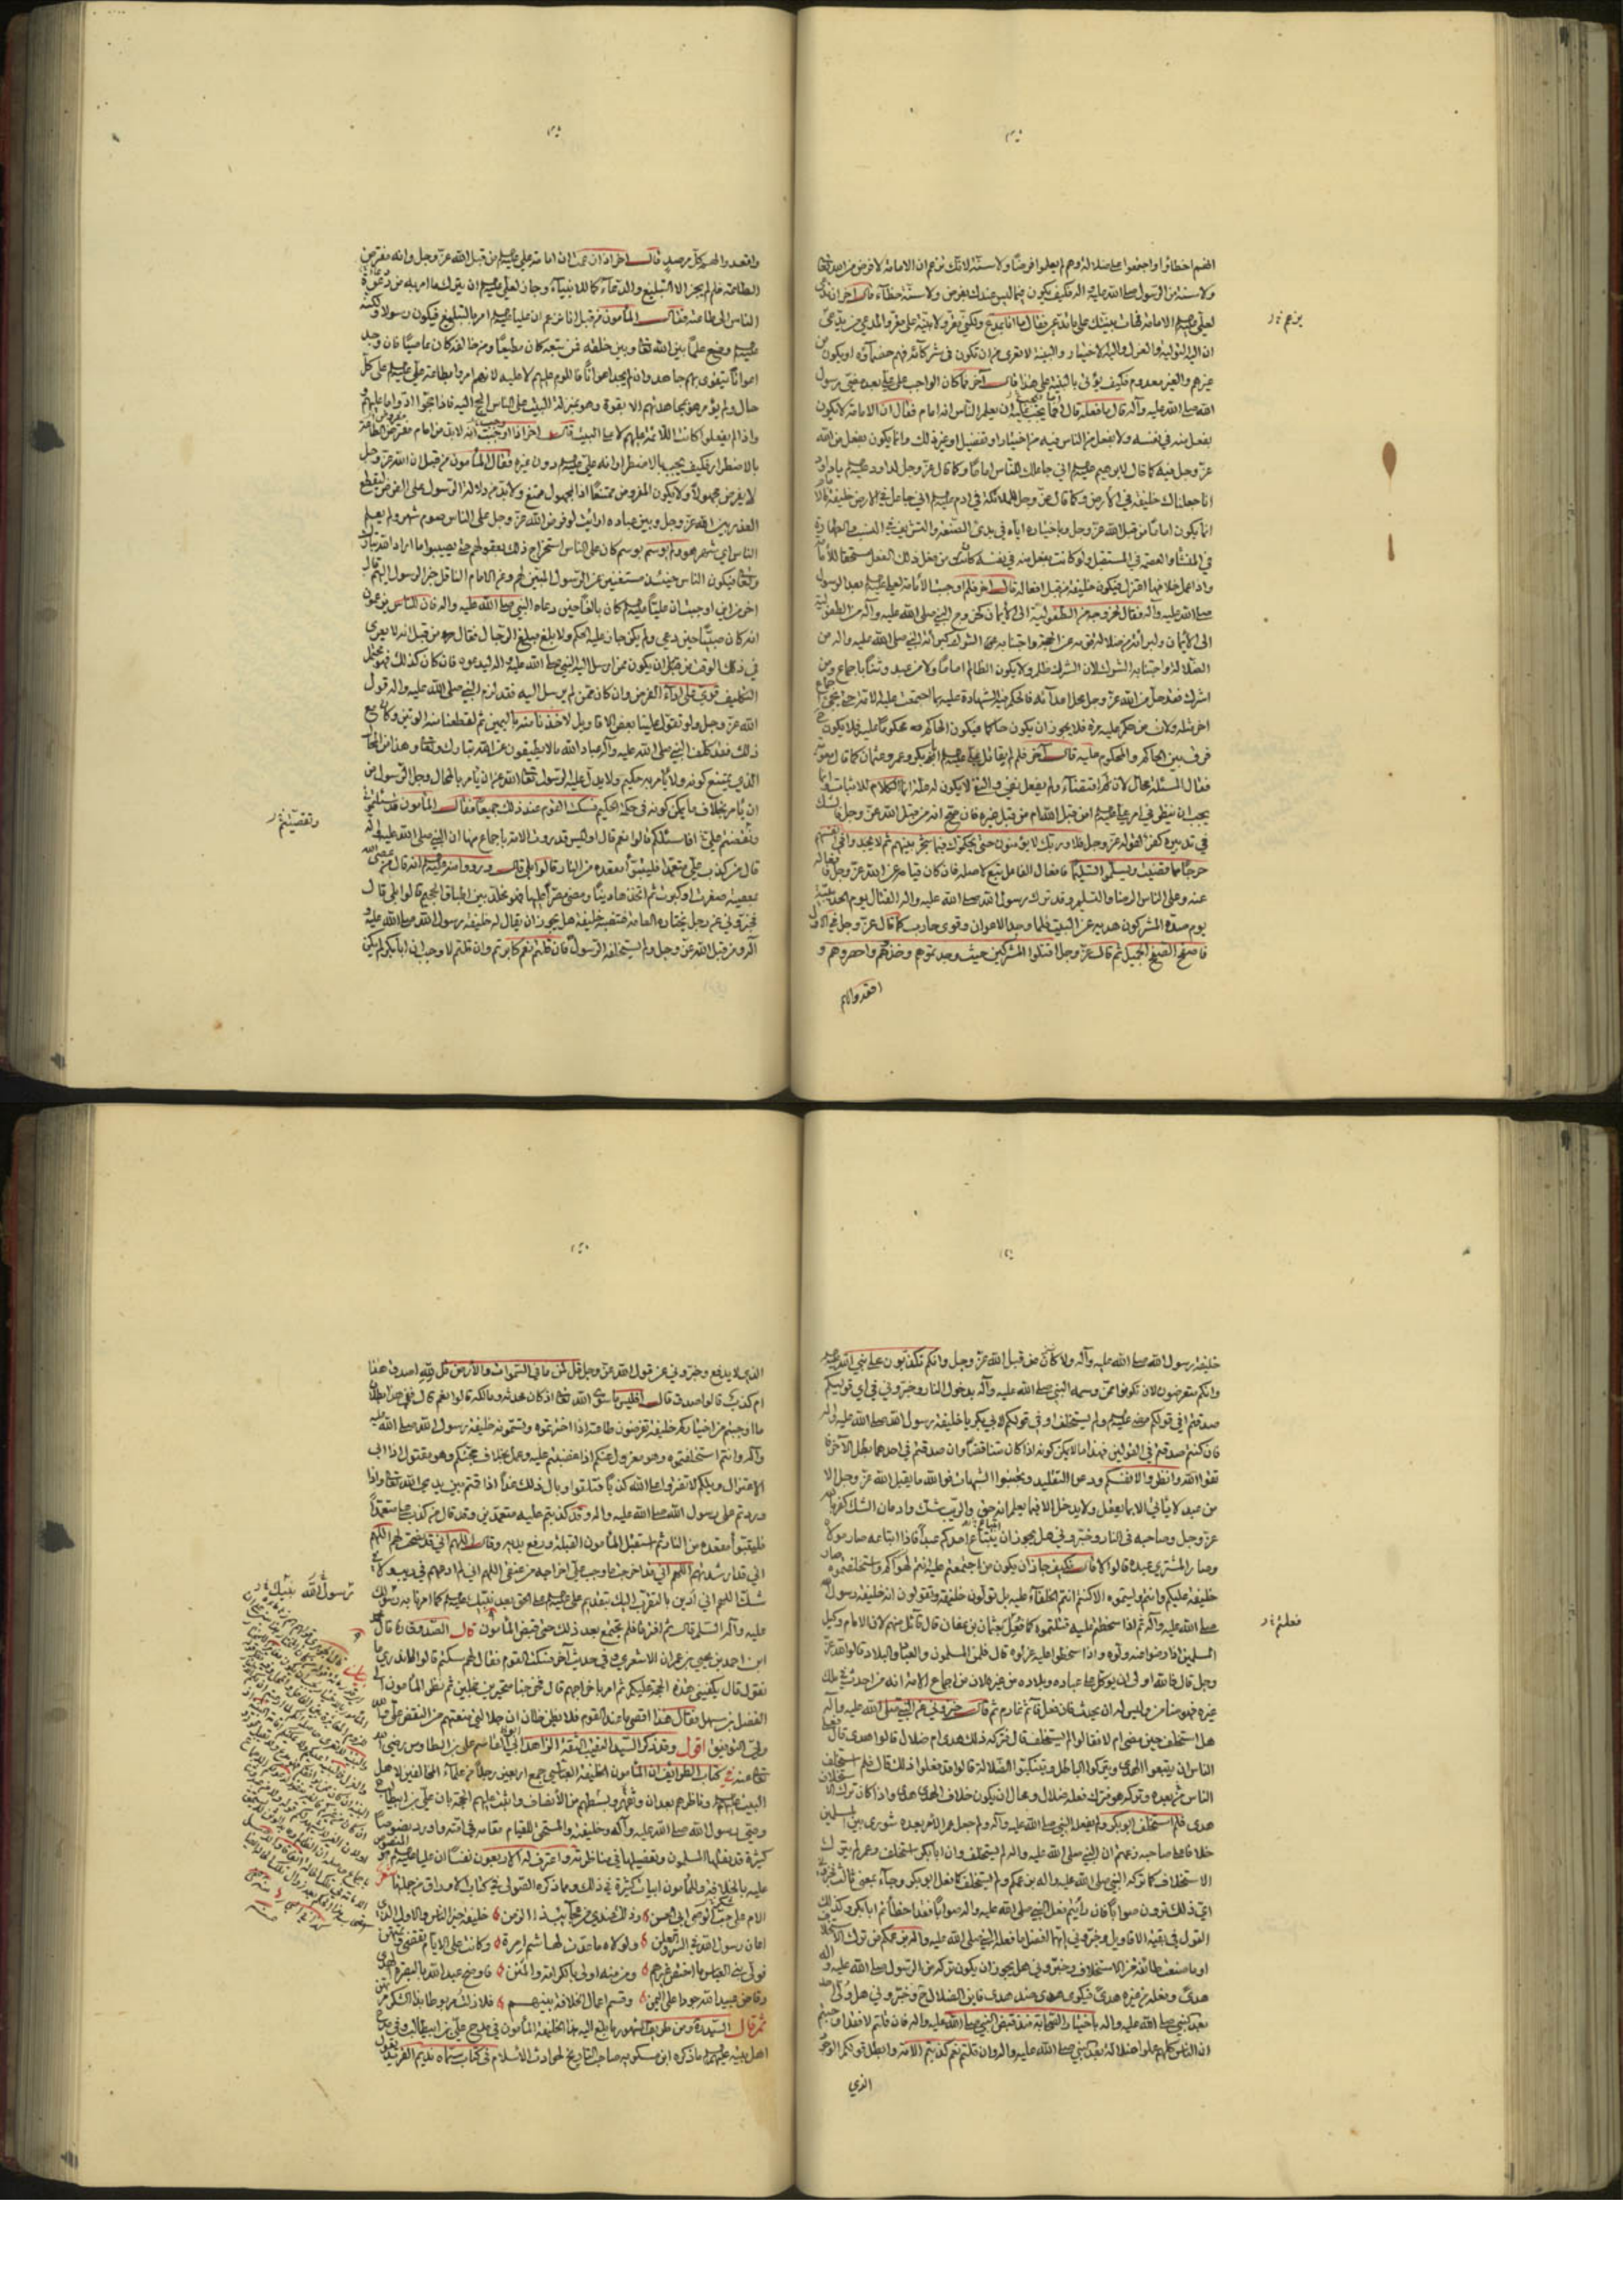 انهم اخطاوا واجتمعوا على ضلالة وهم لم يعلموا فرضا ولا سنة لانك تزعم ان الامامة لا فرض من الله تعالى
ولا سنة من الرسول صلى الله عليه واله فكيف يكون فيما ليس عندك بفرض ولا سنة خطأ قال اخر ان
لعلي عليه السلام الامامة فهات بينتك على ما تدعي فقال ما انا بمدع ولكني مقر ولا بينة على مقر والمدعي من يدعي
ان اليه التولية والعزل واليه الاختيار والبينة لا تعرى من ان تكون من شركائه فهم خصماؤه او يكون من
غيرهم والغير معدوم فكيف يؤتى بالبينة على هذا قال آخر فما كان الواجب على علي بعد مضي رسول
الله صلى الله عليه وآله قال ما فعله قال افما يجب عليه ان يعلم الناس انه امام فقال ان الامامة لا تكون
بفعل منه في نفسه ولا بفعل من الناس فيه من اختيار او تفضيل او غير ذلك وانما يكون بفعل من الله
عز وجل فيه كما قال لابرهيم عليه السلام اني جاعلك للناس اماما وكما قال عز وجل لداود عليه السلام يا داود
انا جعلناك خليفة في الارض وكما قال عز وجل للملائكة في ادم عليه السلام اني جاعل في الارض خليفة
انما يكون اماما من قبل الله عز وجل وباختياره اياه في بدء الصنيعة والتشريف في النسب والطهارة
في المنشأ والعصمة في المستقبل ولو كانت بفعل منه في نفسه كان من فعل ذلك الفعل مستحقا للامامة
واذا عمل خلافها اعتزل فيكون خليفة من قبل افعاله قال اخر فلم اوجبت الامامة لعلي بعد الرسول
صلى الله عليه وآله فقال لخروجه من الطفولية الى الايمان كخروج النبي صلى الله عليه وآله من الطفولية
الى الايمان والبراءة من ضلالة قومه عن الحجة واجتنابه الشرك كبراءة النبي صلى الله عليه واله من
الضلالة واجتنابه الشرك لان الشرك ظلم ولا يكون الظالم اماما ولا من عبد وثنا باجماع ومن
اشرك فقد حل من الله عز وجل محل اعدائه فالحكم فيه الشهادة عليه بما اجتمعت عليه الامة حتى يجيء
اجماع اخر مثله ولان من حكم عليه مرة فلا يجوز ان يكون حاكما فيكون الحاكم محكوما عليه فلا يكون
فرق بين الحاكم والمحكوم عليه قال آخر فلم لم يقاتل علي عليه السلام ابا بكر وعمر وعثمان كما قاتل معوية
فقال المسئلة محال لان لم اقتضاء ولم يفعل نفي والنفي لا يكون له علة انما العلة للاثبات وانما
يجب ان ينظر في امر علي عليه السلام امن قبل الله ام من قبل غيره فان صح انه من قبل الله عز وجل فالشك
في تدبيره كفر لقوله عز وجل فلا وربك لا يؤمنون حتى يحكموك فيما شجر بينهم ثم لا يجدوا في انفسهم
حرجا مما قضيت ويسلموا تسليما فافعال الفاعل تبع لاصله فان كان قيامه عن الله عز وجل فافعاله
عنه وعلى الناس الرضا والتسليم وقد ترك رسول الله صلى الله عليه واله القتال يوم الحديبية
يوم صد المشركون هديه عن البيت فلما وجد الاعوان وقوي حارب كما قال عز وجل في الاول
فاصفح الصفح الجميل ثم قال عز وجل اقتلوا المشركين حيث وجدتموهم وخذوهم واحصروهم و
اقعدوا لهم
واقعدوا لهم كل مرصد قال اخر اذا زعمت ان امامة علي عليه السلام من قبل الله عز وجل وانه مفترض
الطاعة فلم لم يجز الا التبليغ والدعاء كما للانبياء وجاز لعلي عليه السلام ان يترك ما امر به من دعوة
الناس الى طاعته فقال المأمون من قبل انا لم نزعم ان عليا عليه السلام امر بالتبليغ فيكون رسولا ولكنه
عليه السلام وضع علما بين الله تعالى وبين خلقه فمن تبعه كان مطيعا ومن خالفه كان عاصيا فان وجد
اعوانا يتقوى بهم جاهد وان لم يجد اعوانا فاللوم عليهم لا عليه لانهم امروا بطاعة علي عليه السلام على كل
حال ولم يؤمر هو بمجاهدتهم الا بقوة وهو بمنزلة البيت على الناس الحج اليه فاذا حجوا ادوا ما عليهم و
واذا لم يفعلوا كانت اللائمة عليهم لا على البيت قال اخر اذا وجب انه لا بد من امام مفترض الطاعة
بالاضطرار فكيف يجب بالاضطرار انه علي عليه السلام دون غيره فقال المأمون من قبل ان الله عز وجل
لا يفرض مجهولا ولا يكون المفروض ممتنعا اذ المجهول ممتنع ولا بد من دلالة الرسول على الفرض ليقطع
العذر بين الله عز وجل وبين عباده ارايت لو فرض الله عز وجل على الناس صوم شهر ولم يعلم
الناس اي شهر هو ولم يوسم بوسم كان على الناس استخراج ذلك بعقولهم حتى يصيبوا ما اراد الله تبارك
وتعالى فيكون الناس حينئذ مستغنين عن الرسول المبين لهم وعن الامام الناقل خبر الرسول اليهم قال
اخر من اين اوجبت ان عليا عليه السلام كان بالغا حين دعاه النبي صلى الله عليه واله فان الناس يزعمون
انه كان صبيا حين دعي ولم يكن جاز عليه الحكم ولا بلغ مبلغ الرجال فقال من قبل انه لا يعرى
في ذلك الوقت من ان يكون ممن ارسل اليه النبي صلى الله عليه واله ليدعوه فان كان كذلك فهو محتمل
التكليف قوي على اداء الفرض وان كان ممن لم يرسل اليه فقد لزم النبي صلى الله عليه واله قول
الله عز وجل ولو تقول علينا بعض الاقاويل لاخذنا منه باليمين ثم لقطعنا منه الوتين وكان مع
ذلك فقد كلف النبي صلى الله عليه وآله عباد الله ما لا يطيقون عن الله تبارك وتعالى وهذا من المحال
الذي يمتنع كونه ولا يأمر به حكيم ولا يدل عليه الرسول تعالى الله عن ان يأمر بالمحال وجل الرسول من
ان يأمر بخلاف ما يمكن كونه في حكمة الحكيم فسكت القوم عند ذلك جميعا فقال المأمون قد سئلتموني
ونقضتم علي افاسئلكم قالوا نعم قال اوليس قد روت الامة باجماع منها ان النبي صلى الله عليه واله
قال من كذب علي متعمدا فليتبوأ مقعده من النار قالوا بلى قال ورووا عنه عليه السلام انه قال من عصى الله
بمعصية صغرت او كبرت ثم اتخذها دينا ومضى مصرا عليها فهو مخلد بين اطباق الجحيم قالوا بلى قال
فخبروني عن رجل تختاره العامة فتنصبه خليفة هل يجوز ان يقال له خليفة رسول الله صلى الله عليه و
آله ومن قبل الله عز وجل ولم يستخلفه الرسول فان قلتم نعم كابرتم وان قلتم لا وجب ان ابا بكر لم يكن
خليفة رسول الله صلى الله عليه وآله ولا كان من قبل الله عز وجل وانكم تكذبون على نبي الله
وانكم متعرضون لان تكونوا ممن وسمه النبي صلى الله عليه وآله بدخول النار وخبروني في اي قوليكم
صدقتم افي قولكم مضى عليه السلام ولم يستخلف او في قولكم لابي بكر يا خليفة رسول الله صلى الله عليه واله
فان كنتم صدقتم في القولين فهذا ما لا يمكن كونه اذ كان متناقضا وان صدقتم في احدهما بطل الآخر فا
تقوا الله وانظروا لانفسكم ودعوا التقليد وتجنبوا الشبهات فوالله ما يقبل الله عز وجل الا
من عبد لا يأتي الا بما يعقل ولا يدخل الا فيما يعلم انه حق والريب شك وادمان الشك كفر بالله
عز وجل وصاحبه في النار وخبروني هل يجوز ان يبتاع احدكم عبدا فاذا ابتاعه صار مولاه
وصار المشتري عبده قالوا لا قال فكيف جاز ان يكون من اجتمعتم عليه انتم لهواكم واستخلفتموه صار
خليفة عليكم وانتم وليتموه الا كنتم انتم الخلفاء عليه بل تولون خليفة وتقولون انه خليفة رسول الله
صلى الله عليه وآله ثم اذا سخطتم عليه قتلتموه كما فعل بعثمان بن عفان قال قائل منهم لان الامام وكيل
المسلمين اذا رضوا عنه ولوه واذا سخطوا عليه عزلوه قال فلمن المسلمون والعباد والبلاد قالوا لله عز
وجل قال فالله اولى ان يوكل على عباده وبلاده من غيره لان من اجماع الامة انه من احدث في ملك
غيره فهو ضامن وليس له ان يحدث فان فعل فآثم غارم ثم قال خبروني عن النبي صلى الله عليه وآله
هل استخلف حين مضى ام لا فقالوا لم يستخلف قال فتركه ذلك هدى ام ضلال قالوا هدى قال فعلى
الناس ان يتبعوا الهدى ويتركوا الباطل ويتنكبوا الضلالة قالوا قد فعلوا ذلك قال فلم استخلف
الناس بعده وتركه هو فترك فعله ضلال ومحال ان يكون خلاف الهدى هدى واذا كان ترك الاستخلاف
هدى فلم استخلف ابو بكر ولم يفعله النبي صلى الله عليه وآله ولم جعل عمر الامر بعده شورى بين المسلمين
خلافا على صاحبه زعمتم ان النبي صلى الله عليه واله لم يستخلف وان ابا بكر استخلف وعمر لم يترك
الاستخلاف كما تركه النبي صلى الله عليه واله بزعمكم ولم يستخلف كما فعل ابو بكر وجاء بمعنى ثالث فخبروني
اي ذلك ترون صوابا فان رأيتم فعل النبي صلى الله عليه واله صوابا فقد اخطأتم ابا بكر وكذلك
القول في بقية الاقاويل وخبروني ايهما افضل ما فعله النبي صلى الله عليه واله بزعمكم من ترك الاستخلاف
او ما صنعت طائفة من الاستخلاف وخبروني هل يجوز ان يكون تركه من الرسول صلى الله عليه واله
هدى وفعله من غيره هدى فيكون هدى ضد هدى فاين الضلال ح وخبروني هل ولي احد
بعد النبي صلى الله عليه واله باختيار الصحابة منذ قبض النبي صلى الله عليه واله فان قلتم لا فقد اوجبتم
ان الناس كلهم عملوا ضلالة بعد النبي صلى الله عليه واله وان قلتم نعم كذبتم الامة وابطل قولكم الوجود
الذي
الذي لا يدفع وخبروني عن قول الله عز وجل قل لمن ما في السموات والارض قل لله اصدق هذا
ام كذب قالوا صدق قال افليس ما سوى الله لله اذ كان محدثه ومالكه قالوا نعم قال ففي هذا ابطال
ما اوجبتم من اختياركم خليفة تفترضون طاعته اذا اخترتموه وتسمونه خليفة رسول الله صلى الله عليه
وآله وانتم استخلفتموه وهو معزول عنكم اذا غضبتم عليه وعمل بخلاف محبتكم وهو مقتول اذا ابى
الاعتزال ويلكم لا تفتروا على الله كذبا فتلقوا وبال ذلك غدا اذا قمتم بين يدي الله تعالى واذا
وردتم على رسول الله صلى الله عليه واله وقد كذبتم عليه متعمدين وقد قال من كذب علي متعمدا
فليتبوأ مقعده من النار ثم استقبل المأمون القبلة ورفع يديه وقال اللهم اني قد نصحت لهم اللهم
اني قد ارشدتهم اللهم اني قد اخرجت ما وجب علي اخراجه من عنقي اللهم اني لم ادعهم في ريب ولا في
شك اللهم اني ادين بالتقرب اليك بتقديم علي عليه السلام على الخلق بعد نبيك كما امرنا به رسولك
عليه وآله السلام قال ثم افترقنا فلم نجتمع بعد ذلك حتى قبض المأمون قال الصدوق قال
ابن احمد بن يحيى بن عمران الاشعري وفي حديث آخر فسكت القوم فقال لهم لم سكتم قالوا لا ندري ما
نقول قال يكفيني هذه الحجة عليكم ثم امر باخراجهم قال فخرجنا متحيرين خجلين ثم نظر المأمون الى
الفضل بن سهل فقال هذا اقصى ما عند القوم فلا يظن ظان ان جلالتي منعتهم من النقض علي وبالله
ولي التوفيق اقول وقد ذكر السيد النقيب الثقة الزاهد ابي القاسم علي بن الطاوس رضي الله
تعالى عنه في كتاب الطرائف ان المأمون الخليفة العباسي جمع اربعين رجلا من علماء المخالفين لاهل
البيت عليهم السلام وناظرهم بعد ان وبسطهم من الانصاف واثبت عليهم الحجة بان علي بن ابيطالب
وصي رسول الله صلى الله عليه وآله وخليفته والمستحق للقيام مقامه في امته واورد نصوصا
كثيرة قد نقلها المسلمون وتفضيلها في مناظرته واعترف له الاربعون نفسا ان عليا عليه السلام هو
عليه بالخلافة والمأمون ابيات كثيرة في ذلك وما ذكره الصولي في كتاب الاوراق من جملتها
الام على حب الوصي ابي الحسن وذلك عندي من عجايب ذا الزمن خليفة خير الناس والاول الذي
اعان رسول الله في السر والعلن ولولاه ما عدت لهاشم امرة وكانت على الايام تقضى وتمتهن
فولى بني العباس ما اختص غيرهم ومن منه اولى بالكرامة والمنن فاوضح عبد الله بالبصرة الهدى
وفاض عبيد الله جودا على اليمن وقسم اعمال الخلافة بينهم فلا زلت مربوطا بذا الشكر مرتهن
ثم قال السيد ره ومن طريف المشهور ما بلغ اليه هذا الخليفة المأمون في مدح علي بن ابيطالب ومدح
اهل بيته عليهم السلام ما ذكره ابن مسكويه صاحب التاريخ لحوادث الاسلام في كتاب سماه نديم الفريد